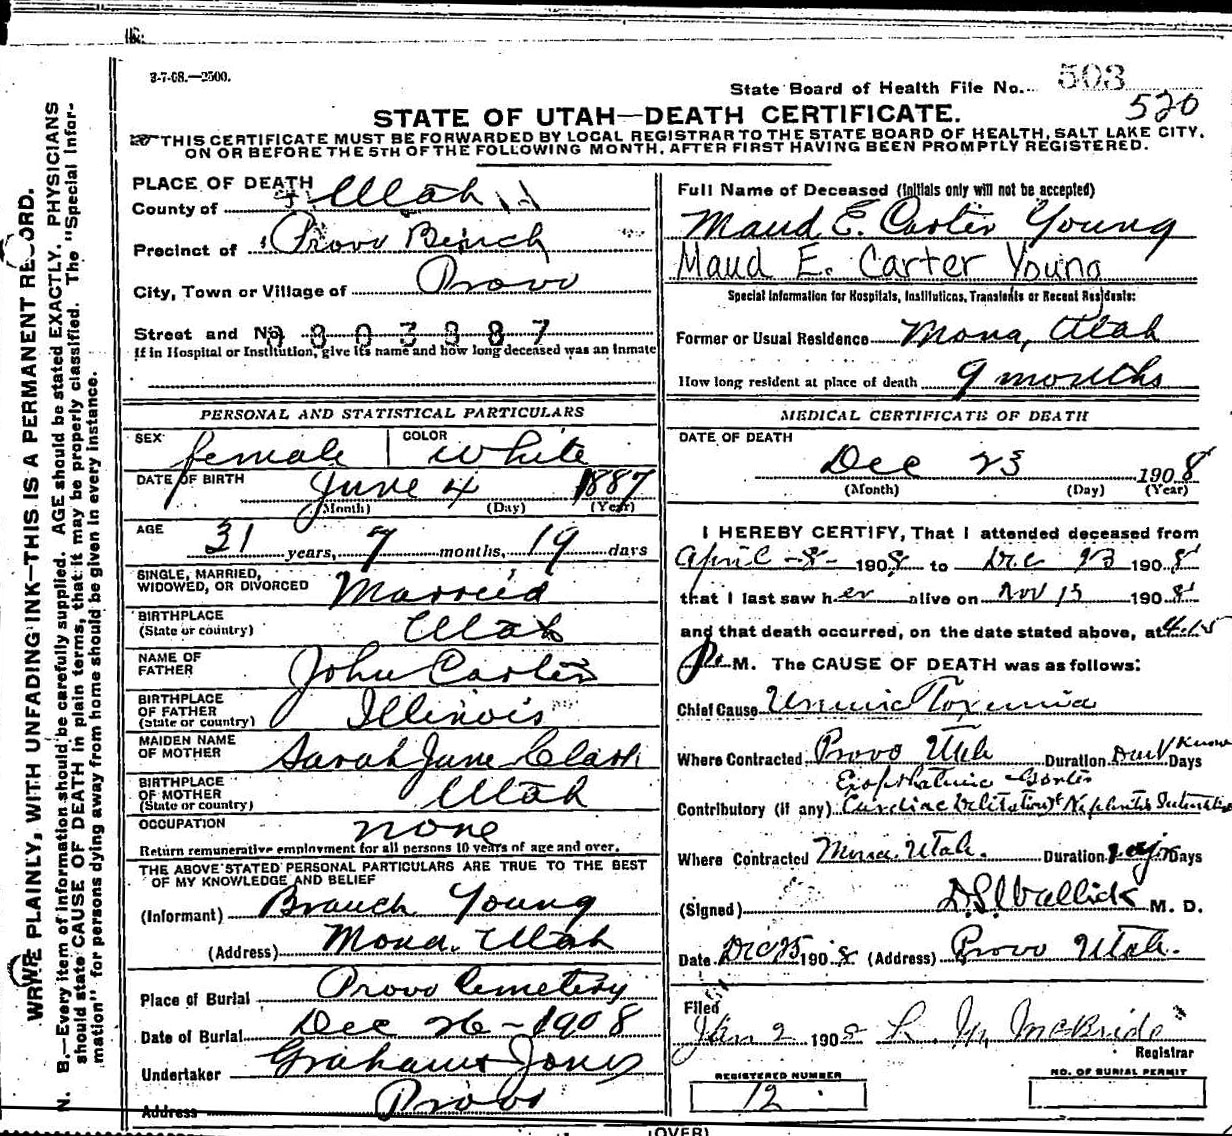 3-7-08.—2500.
State Board of Health File No. 503
520
STATE OF UTAH—DEATH CERTIFICATE.
THIS CERTIFICATE MUST BE FORWARDED BY LOCAL REGISTRAR TO THE STATE BOARD OF HEALTH, SALT LAKE CITY,
ON OR BEFORE THE 5TH OF THE FOLLOWING MONTH, AFTER FIRST HAVING BEEN PROMPTLY REGISTERED.
WRITE PLAINLY, WITH UNFADING INK—THIS IS A PERMANENT RECORD.
N. B.—Every item of information should be carefully supplied. AGE should be stated EXACTLY. PHYSICIANS
should state CAUSE OF DEATH in plain terms, that it may be properly classified. The "Special Infor-
mation" for persons dying away from home should be given in every instance.
PLACE OF DEATH
County of Utah
Precinct of Provo Bench
City, Town or Village of Provo
Street and No. 803887
If in Hospital or Institution, give its name and how long deceased was an inmate
PERSONAL AND STATISTICAL PARTICULARS
SEX female COLOR White
DATE OF BIRTH June 4 1887
(Month) (Day) (Year)
AGE 31 years, 7 months, 19 days
SINGLE, MARRIED,
WIDOWED, OR DIVORCED Married
BIRTHPLACE
(State or country) Utah
NAME OF
FATHER John Carter
BIRTHPLACE
OF FATHER
(State or country) Illinois
MAIDEN NAME
OF MOTHER Sarah Jane Clark
BIRTHPLACE
OF MOTHER
(State or country) Utah
OCCUPATION none
Return remunerative employment for all persons 10 years of age and over.
THE ABOVE STATED PERSONAL PARTICULARS ARE TRUE TO THE BEST
OF MY KNOWLEDGE AND BELIEF
(Informant) Branch Young
(Address) Mona. Utah
Place of Burial Provo Cemetery
Date of Burial Dec 26-1908
Undertaker Graham & Jones
Address Provo
Full Name of Deceased (Initials only will not be accepted)
Maud E. Carter Young
Maud E. Carter Young
Special Information for Hospitals, Institutions, Transients or Recent Residents:
Former or Usual Residence Mona, Utah
How long resident at place of death 9 months
MEDICAL CERTIFICATE OF DEATH
DATE OF DEATH
Dec 23 1908
(Month) (Day) (Year)
I HEREBY CERTIFY, That I attended deceased from
April -8- 1908 to Dec 23 1908
that I last saw her alive on Nov 15 1908
and that death occurred, on the date stated above, at 4:15
P. M. The CAUSE OF DEATH was as follows:
Chief Cause Uremic Toxemia
Where Contracted Provo Utah Duration Don't Know Days
Exopthalmic Goiter
Contributory (if any) Cardiac Dilitation & Nephritis
Where Contracted Mona, Utah. Duration Days
(Signed) M. D.
Date Dec 25 1908 (Address) Provo Utah.
Filed
Jan 2 1908 McBride
Registrar
REGISTERED NUMBER
12
NO. OF BURIAL PERMIT
(OVER)